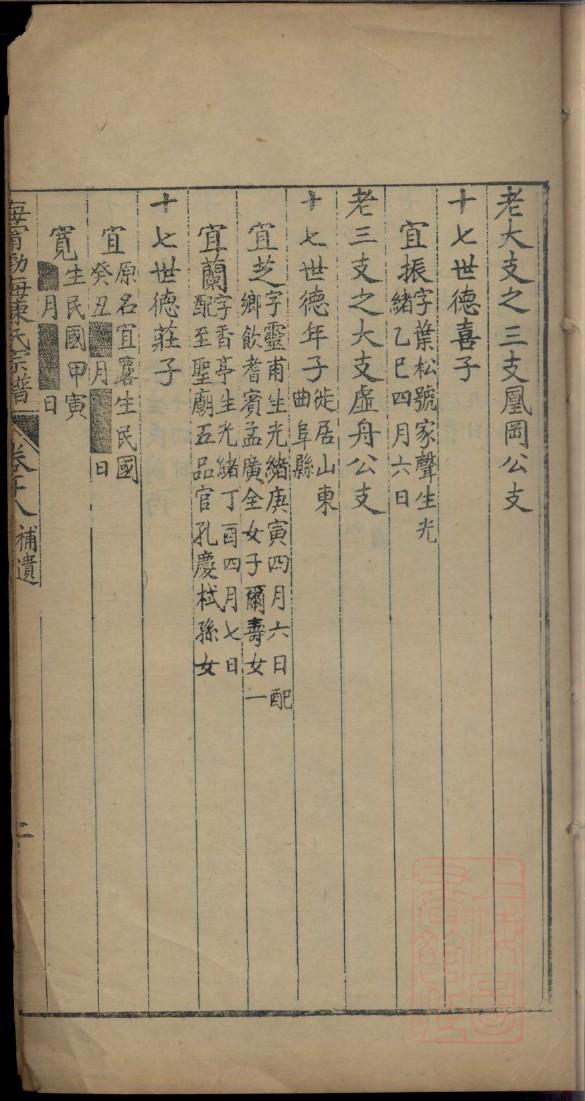 老大支之三支凰岡公支
十七世德喜子
宜振字葉松號家聲生光
緒乙巳四月六日
老三支之大支虛舟公支
十七世德年子徙居山東
曲阜縣
宜芝字靈甫生光緒庚寅四月六日配
鄉飲耆賓孟廣全女子爾壽女一
宜蘭字香亭生光緒丁酉四月七日
配至聖廟五品官孔慶栻孫女
十七世德莊子
宜原名宜畧生民國
癸丑月日
寬生民國甲寅
月日
海甯渤海陳氏宗譜 卷十八 補遺 二